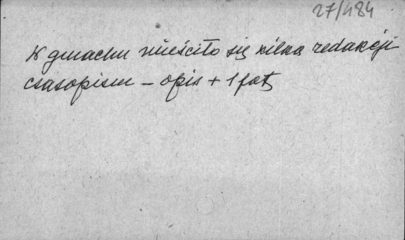 27/484
W gmachu mieściło się kilka redakcji
czasopism – opis + 1 fot.